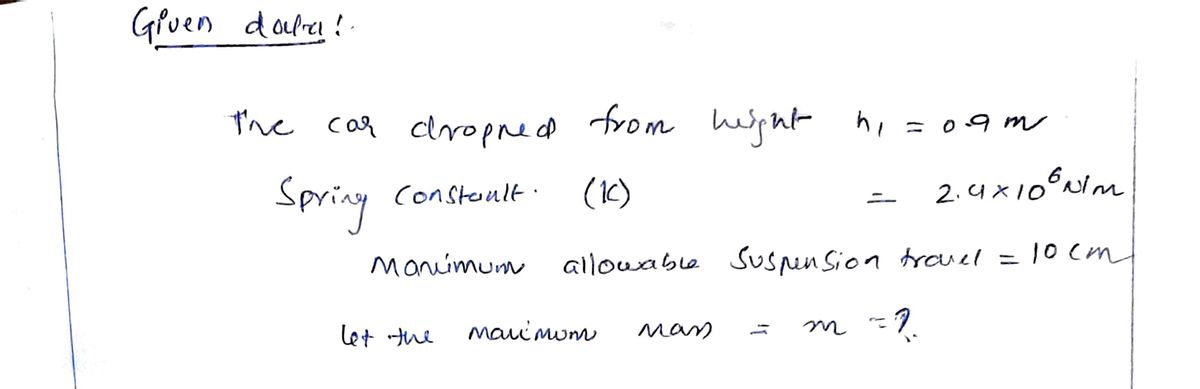 Given data:-
The car dropped from height h₁ = 0.9 m
Spring constant. (K) = 2.4×10⁶ N/m
Maximum allowable suspension travel = 10 cm
let the maximum mass = m = ?.